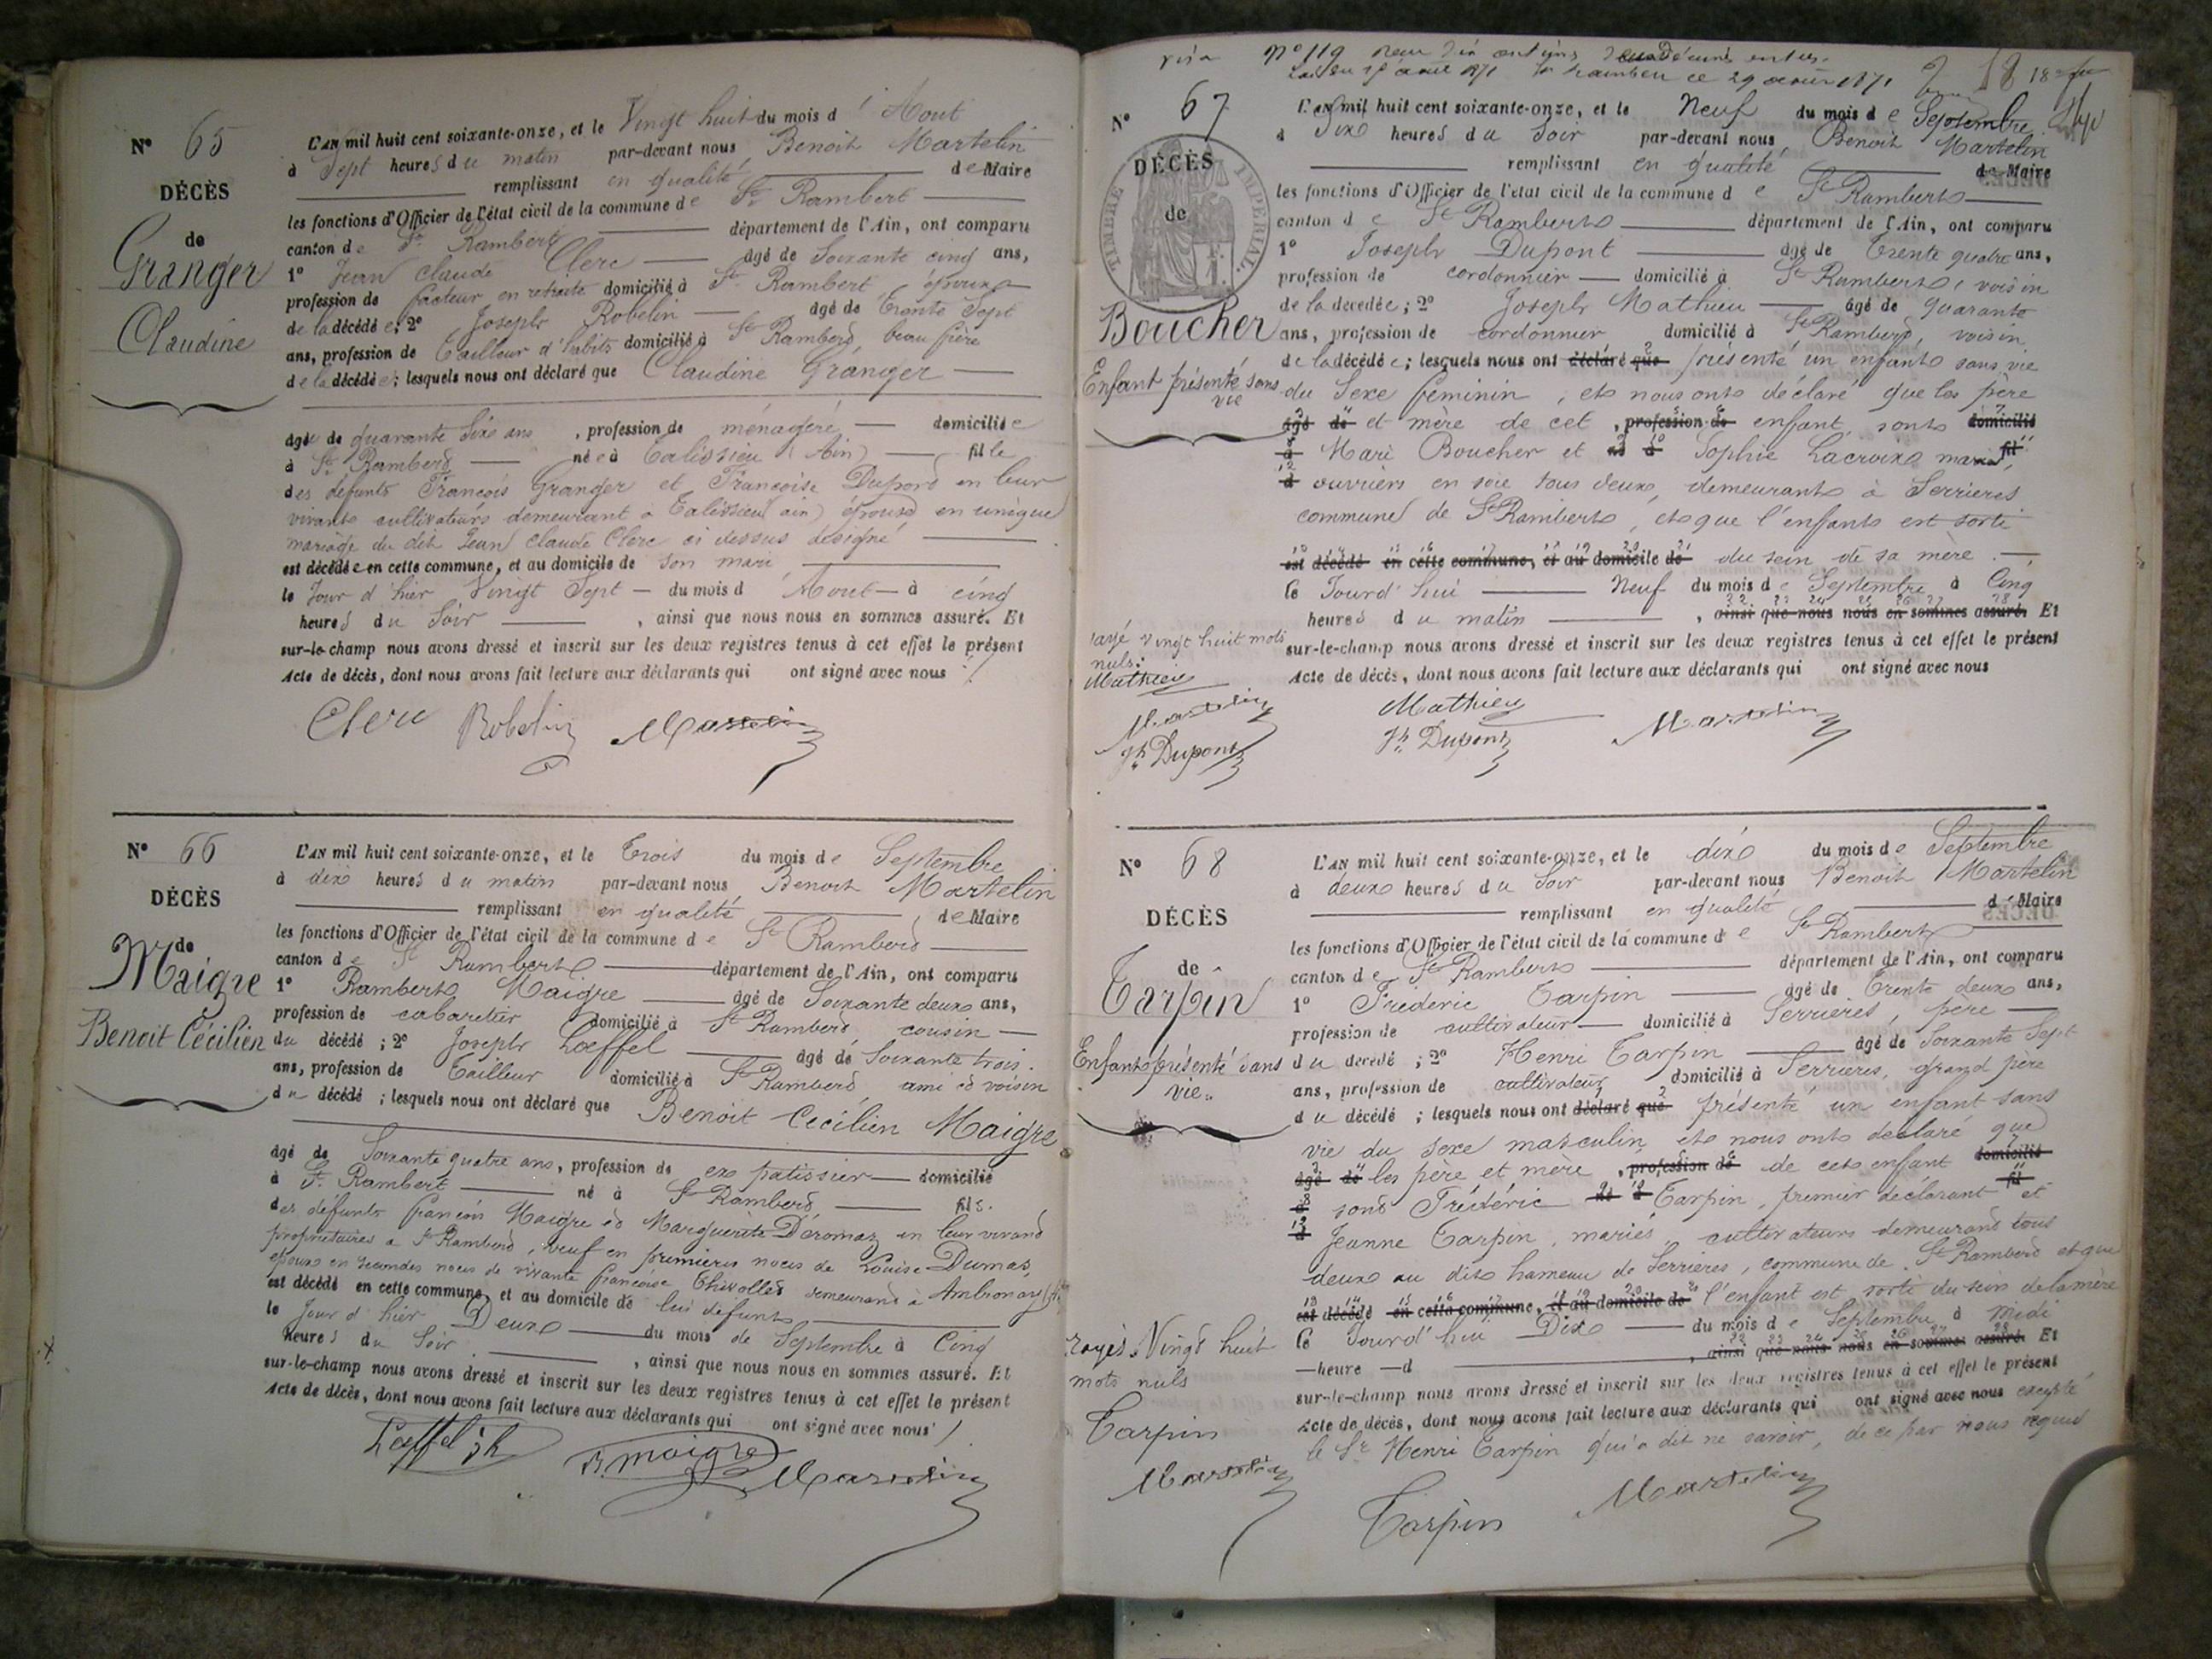 N° 65
DÉCÈS
de
Granger
Claudine
L'AN mil huit cent soixante-onze, et le Vingt huit du mois d'Aout
à Sept heures du matin par-devant nous Benoit Martelin
remplissant en qualité de Maire
les fonctions d'Officier de l'état civil de la commune de St Rambert
canton de St Rambert département de l'Ain, ont comparu
1° Jean Claude Clerc âgé de Soixante cinq ans,
profession de facteur en retraite domicilié à St Rambert époux
de la décédée; 2° Joseph Robelin âgé de Trente Sept
ans, profession de Tailleur d'habits domicilié à St Rambert, beau frère
de la décédée; lesquels nous ont déclaré que Claudine Granger
âgée de quarante Six ans, profession de ménagère domiciliée
à St Rambert née à Talissieu (Ain) fille
des défunts François Granger et Françoise Dupord en leur
vivants cultivateurs demeurant à Talissieu (ain) épouse en unique
mariage du dit Jean Claude Clerc ci dessus désigné
est décédée en cette commune, et au domicile de son mari
le Jour d'hier Vingt Sept du mois d'Aout à cinq
heures du Soir, ainsi que nous nous en sommes assuré. Et
sur-le-champ nous avons dressé et inscrit sur les deux registres tenus à cet effet le présent
Acte de décès, dont nous avons fait lecture aux déclarants qui ont signé avec nous
Clerc Robelin Martelin
N° 66
DÉCÈS
de
Maigre
Benoit Cécilien
L'AN mil huit cent soixante-onze, et le Trois du mois de Septembre
à dix heures du matin par-devant nous Benoit Martelin
remplissant en qualité de Maire
les fonctions d'Officier de l'état civil de la commune de St Rambert
canton de St Rambert département de l'Ain, ont comparu
1° Rambert Maigre âgé de Soixante deux ans,
profession de cabaretier domicilié à St Rambert cousin
du décédé; 2° Joseph Loeffel âgé de Soixante trois
ans, profession de Tailleur domicilié à St Rambert ami et voisin
du décédé; lesquels nous ont déclaré que Benoit Cécilien Maigre
âgé de Soixante quatre ans, profession de ex patissier domicilié
à St Rambert né à St Rambert, fils
des défunts françois Maigre et Marguerite Deromaz en leur vivant
propriétaires a St Rambert, veuf en premieres noces de Louise Dumas,
époux en secondes noces de vivante françoise Thevolles demeurant à Ambronay
est décédé en cette commune, et au domicile de lui défunt
le Jour d'hier Deux du mois de Septembre à Cinq
heures du Soir, ainsi que nous nous en sommes assuré. Et
sur-le-champ nous avons dressé et inscrit sur les deux registres tenus à cet effet le présent
Acte de décès, dont nous avons fait lecture aux déclarants qui ont signé avec nous
Loeffel jh R. maigre Martelin
visa N° 119
Loi du août 1871 St Rambert ce 29 août 1871
18 18
N° 67
DÉCÈS
de
TIMBRE IMPÉRIAL.
Boucher
Enfant présenté sans
vie
L'AN mil huit cent soixante-onze, et le Neuf du mois de Septembre
à Six heures du Soir par-devant nous Benoit Martelin
remplissant en qualité de Maire
les fonctions d'Officier de l'état civil de la commune de St Rambert
canton de St Rambert département de l'Ain, ont comparu
1° Joseph Dupont âgé de Trente quatre ans,
profession de cordonnier domicilié à St Rambert, voisin
de la décédée; 2° Joseph Mathieu âgé de quarante
ans, profession de cordonnier domicilié à St Rambert, voisin
de la décédée; lesquels nous ont déclaré que présenté un enfant sans vie
du Sexe féminin, et nous ont déclaré que les père
âgé de et mère de cet, profession de enfant, sont domicilié
à Mari Boucher et né à Sophie Lacroix mariés, fil
d ouvriers en soie tous deux, demeurant à Serrieres
commune de St Rambert, et que l'enfant est sorti
est décédé en cette commune, et au domicile de du sein de sa mère.
le Jourd'hui Neuf du mois de Septembre à Cinq
heures du matin, ainsi que nous nous en sommes assuré. Et
sur-le-champ nous avons dressé et inscrit sur les deux registres tenus à cet effet le présent
Acte de décès, dont nous avons fait lecture aux déclarants qui ont signé avec nous
rayé vingt huit mots
nuls.
Mathieu
Martelin
Jh Dupont
Mathieu
Jh Dupont
Martelin
N° 68
DÉCÈS
de
Tarpin
Enfant présenté sans
vie
L'AN mil huit cent soixante-onze, et le dix du mois de Septembre
à deux heures du Soir par-devant nous Benoit Martelin
remplissant en qualité de Maire
les fonctions d'Officier de l'état civil de la commune de St Rambert
canton de St Rambert département de l'Ain, ont comparu
1° Fréderic Tarpin âgé de Trente deux ans,
profession de cultivateur domicilié à Serrieres, père
du décédé; 2° Henri Tarpin âgé de Soixante Sept
ans, profession de cultivateur domicilié à Serrieres, grand père
du décédé; lesquels nous ont déclaré que présenté un enfant sans
vie du sexe masculin et nous ont déclaré que
âgé de les père et mère, profession de de cet enfant domicilié
à sont Frédéric né à Tarpin, premier déclarant fil et
d Jeanne Tarpin, mariés, cultivateurs demeurant tous
deux au dit hameau de Serrieres, commune de St Rambert et que
est décédé en cette commune, et au domicile de l'enfant est sorti du sein de la mère
le Jourd'hui Dix du mois de Septembre à Midi
heure d, ainsi que nous nous en sommes assuré. Et
sur-le-champ nous avons dressé et inscrit sur les deux registres tenus à cet effet le présent
Acte de décès, dont nous avons fait lecture aux déclarants qui ont signé avec nous excepté
le Sr Henri Tarpin qui a dit ne savoir, de ce par nous requis
rayés Vingt huit
mots nuls
Tarpin
Martelin
Tarpin Martelin